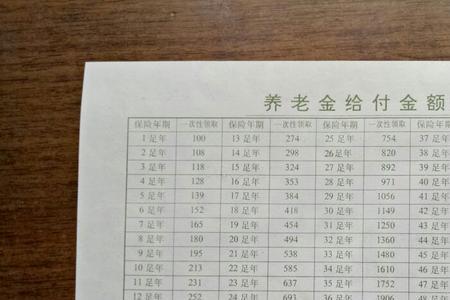 养老金给付金额
保险年期 一次性领取 保险年期 一次性领取 保险年期 一次性领取 保险年期
1足年 100 13足年 274 25足年 754 37足年
2足年 108 14足年 298 26足年 820 38足年
3足年 118 15足年 324 27足年 892 39足年
4足年 128 16足年 353 28足年 971 40足
5足年 139 17足年 384 29足年 1056 41足年
6足年 152 18足年 418 30足年 1149 42足年
7足年 165 19足年 454 31足年 1250 43足年
8足年 180 20足年 494 32足年 1360 44足年
9足年 195 21足年 538 33足年 1480 45足年
10足年 213 22足年 585 34足年 1610 46足年
11足年 231 23足年 637 35足年 1752 47足年
12足年 252 24足年 693 36足年 1906 48足